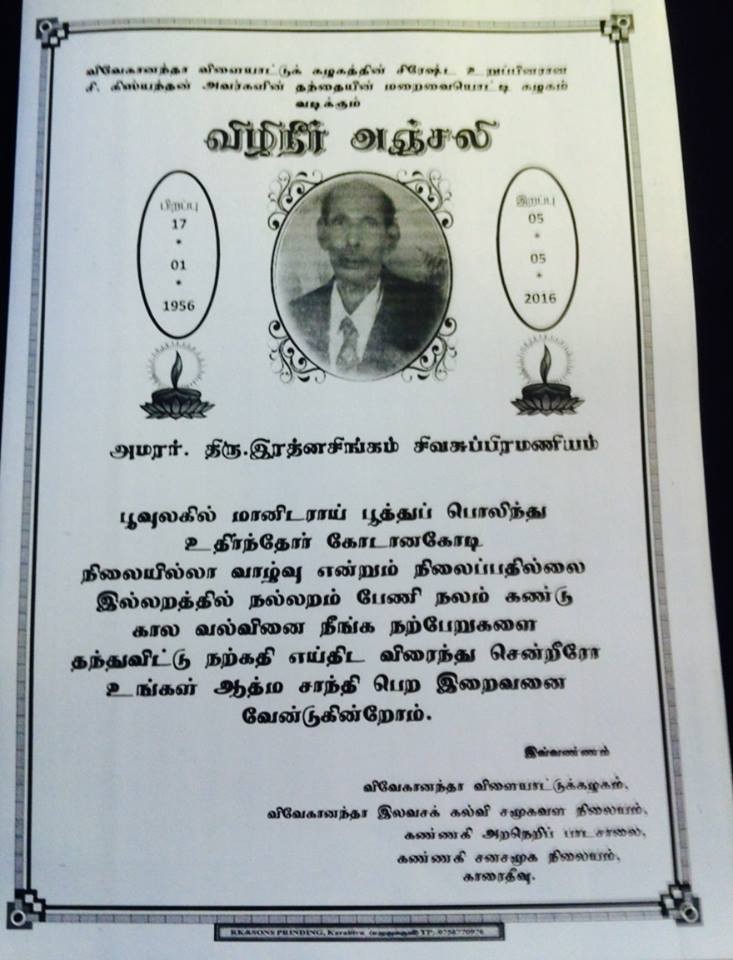 விவேகானந்தா விளையாட்டுக் கழகத்தின் சிரேஷ்ட உறுப்பினரான
சி. கிஸ்யந்தன் அவர்களின் தந்தையின் மறைவையொட்டி கழகம்
வடிக்கும்
விழிநீர் அஞ்சலி
பிறப்பு
17
*
01
*
1956
இறப்பு
05
*
05
*
2016
அமரர். திரு.இரத்னசிங்கம் சிவசுப்பிரமணியம்
பூவுலகில் மானிடராய் பூத்துப் பொலிந்து
உதிர்ந்தோர் கோடானகோடி
நிலையில்லா வாழ்வு என்றும் நிலைப்பதில்லை
இல்லறத்தில் நல்லறம் பேணி நலம் கண்டு
கால வல்வினை நீங்க நற்பேறுகளை
தந்துவிட்டு நற்கதி எய்திட விரைந்து சென்றீரோ
உங்கள் ஆத்ம சாந்தி பெற இறைவனை
வேண்டுகின்றோம்.
இவ்வண்ணம்
விவேகானந்தா விளையாட்டுக்கழகம்,
விவேகானந்தா இலவசக் கல்வி சமுகவள நிலையம்,
கண்ணகி அறநெறிப் பாடசாலை,
கண்ணகி சனசமுக நிலையம்,
காரைதீவு.
RK&SONS PRINDING, TP: 0756770976